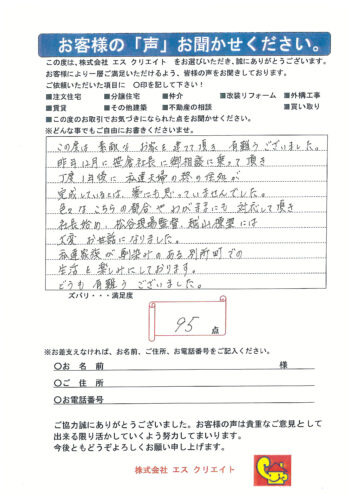 お客様の「声」お聞かせください。
この度は、株式会社 エス クリエイト をお選びいただき、誠にありがとうございます。
お客様により一層ご満足いただけるよう、皆様の声をお聞きしております。
ご依頼いただいた項目に 〇印を記して下さい!
■注文住宅 ■分譲住宅 ■仲介 ■改装リフォーム ■外構工事
■賃貸 ■その他建築 ■不動産の相談 ■買い取り
■この度のお取引でお気づきになられた点をお聞かせください。
※どんな事でもご自由にお書きくださいませ。
この度は 素敵な お家を建てて頂き 有難うございました。
昨年12月に 笹倉社長に御相談に乗って頂き
丁度1年後に 私達夫婦の終の住処が
完成しているとは、夢にも思っていませんでした。
色々 こちらの都合や わがままにも 対応して頂き
社長始め、松谷現場監督、越山様には
大変 お世話になりました。
私達家族が 馴染みのある 別所町での
生活を 楽しみにしております。
どうも 有難う ございました。
ズバリ・・・満足度
95 点
※お差支えなければ、お名前、ご住所、お電話番号をご記入ください。
〇お 名 前 様
〇ご 住 所
〇お電話番号
ご協力誠にありがとうございました。お客様の声は貴重なご意見として
出来る限り活かしていくよう努力してまいります。
今後ともどうぞよろしくお願い申し上げます。
株式会社 エス クリエイト